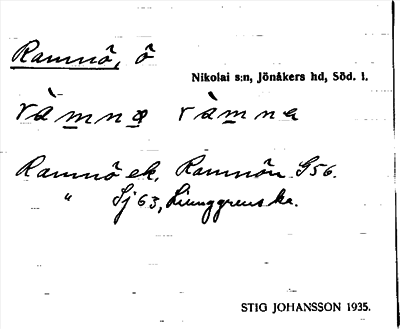 Ramnö, ö
Nikolai s:n, Jönåkers hd, Söd. l.
ràmnø ràmna
Ramnö ek. Ramnön G56.
" Sj63, Liunggrens ka.
STIG JOHANSSON 1935.